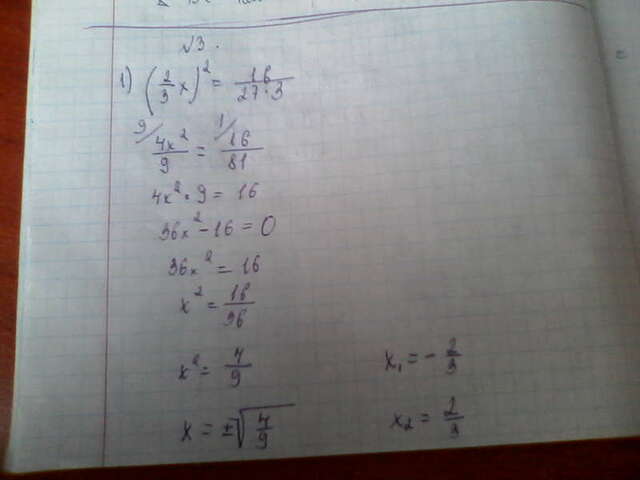 √3.
1) (2/3 x)² = 16/(27·3)
9/ 4x²/9 = 1/ 16/81
4x²·9 = 16
36x² - 16 = 0
36x² = 16
x² = 16/36
x² = 4/9
x₁ = - 2/3
x = ±√(4/9)
x₂ = 2/3